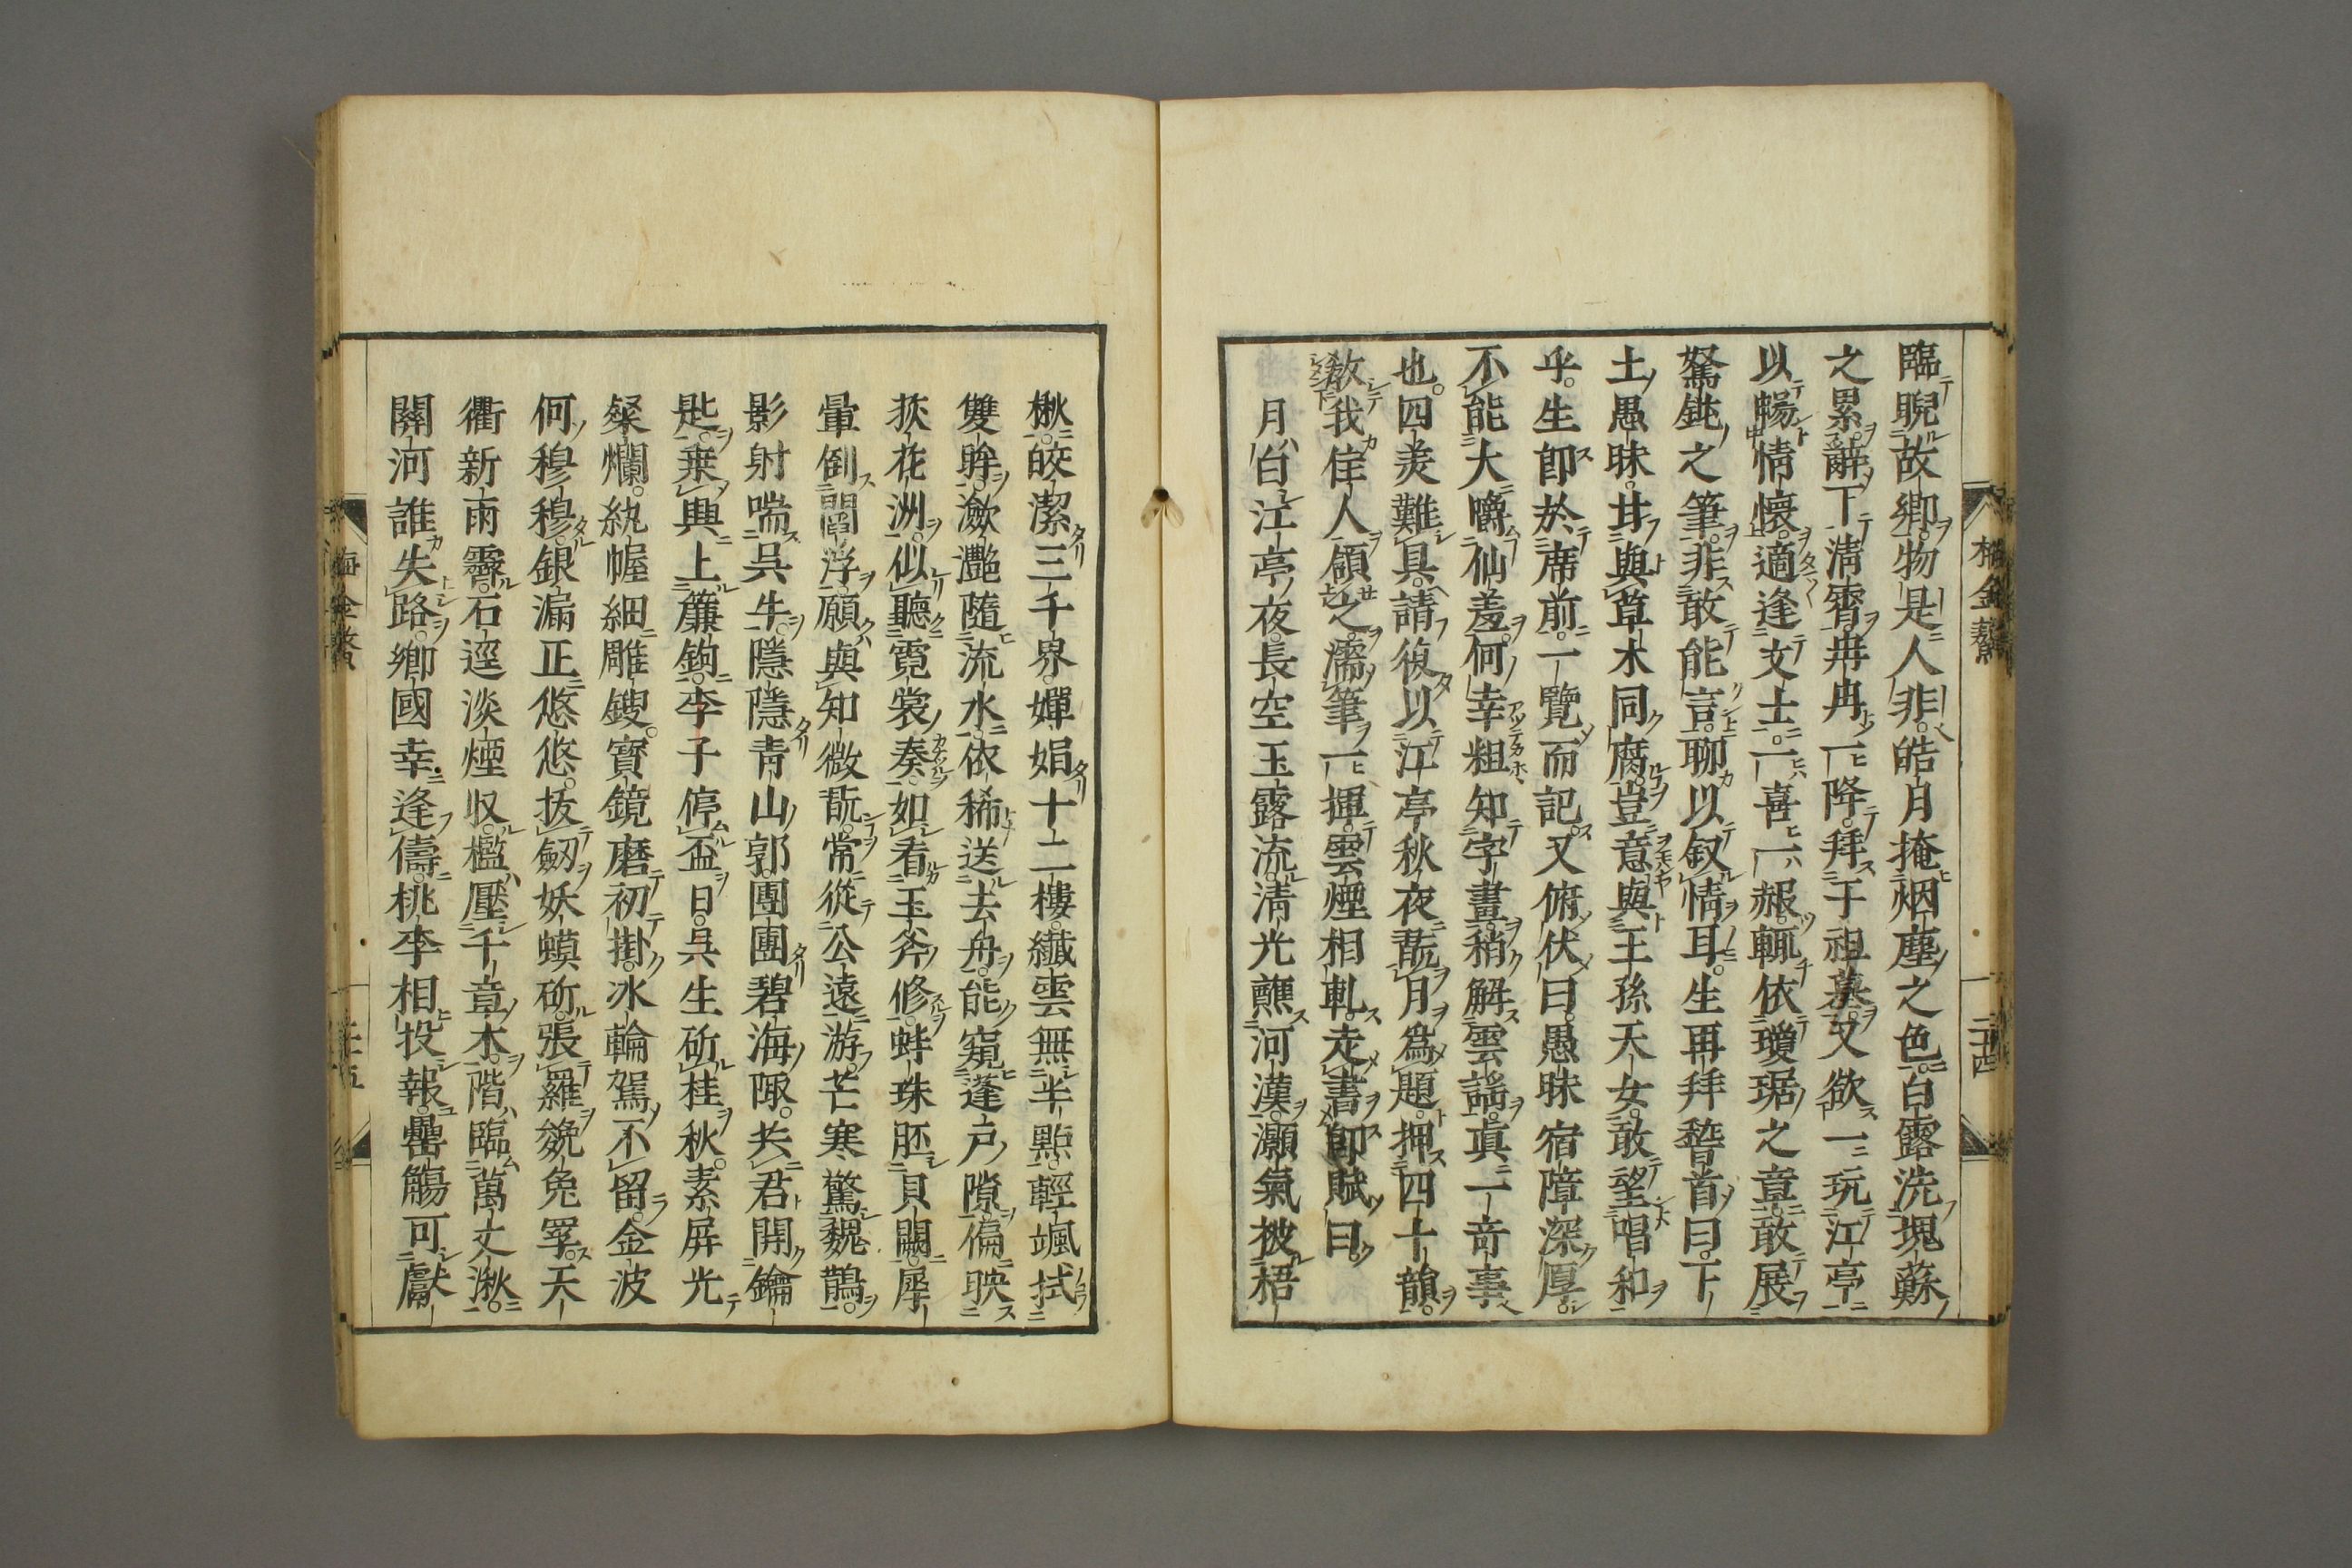 臨睨故鄉物是人非皓月掩烟塵之色白露洗塊蘇
之累辭下淸霄冉冉一降拜于祖墓又欲一玩江亭
以暢情懷適逢文士一喜一赧輒依瓊琚之章敢展
駑鈍之筆非敢能言聊以叙情耳生再拜稽首曰下
土愚昧甘與草木同腐豈意與王孫天女敢望唱和
乎生卽於席前一覽而記又俯伏曰愚昧宿障深厚
不能大嚼仙羞何幸粗知字畫稍解雲謠眞一竒事
也四美難具請復以江亭秋夜翫月爲題押四十韻
敎我佳人頷之濡筆一揮雲煙相軋走書卽賦曰
月白江亭夜長空玉露流淸光蘸河漢灝氣被梧
楸皎潔三千界嬋娟十二樓纖雲無半點輕颯拭
雙眸瀲灩隨流水依稀送去舟能窺蓬戶隙偏映
荻花洲似聽霓裳奏如看玉斧修蚌珠胚貝闕犀
暈倒閻浮願與知微翫常從公遠游芒寒驚魏鵲
影射喘吳牛隱隱靑山郭團團碧海陬共君開鑰
匙乘興上簾鉤李子停盃日吳生斫桂秋素屏光
粲爛紈幄細雕鎪寶鏡磨初掛冰輪駕不留金波
何穆穆銀漏正悠悠拔劒妖蟆斫張羅㕙兔罦天
衢新雨霽石逕淡煙収檻壓千章木階臨萬丈湫
關河誰失路鄉國幸逢儔桃李相投報罍觴可獻
梅金鰲
三十四
梅金鰲
三十五